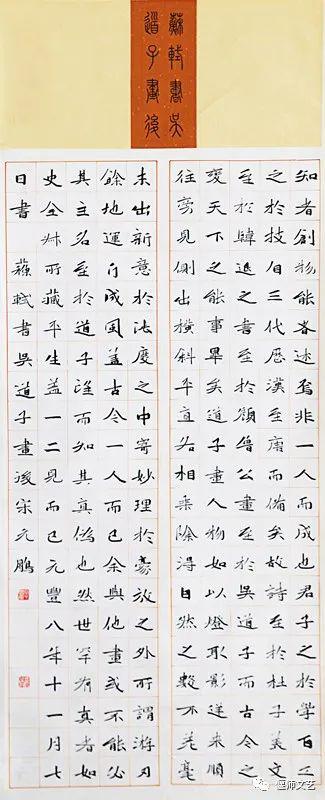 蘇軾書吳
道子畫後
知者創物能者述焉非一人而成也君子之於學百工
之於技自三代歷漢至唐而備矣故詩至於杜子美文
至於韓退之書至於顏魯公畫至於吳道子而古今之
變天下之能事畢矣道子畫人物如以燈取影逆來順
往旁見側出橫斜平直各相乘除得自然之數不差毫
末出新意於法度之中寄妙理於豪放之外所謂游刃
餘地運斤成風蓋古今一人而已余與他畫或不能必
其主名至於道子望而知其真偽也然世罕有真者如
史全叔所藏平生蓋一二見而已元豐八年十一月七
日書 蘇軾書吳道子畫後宋元鵬
偃师文艺